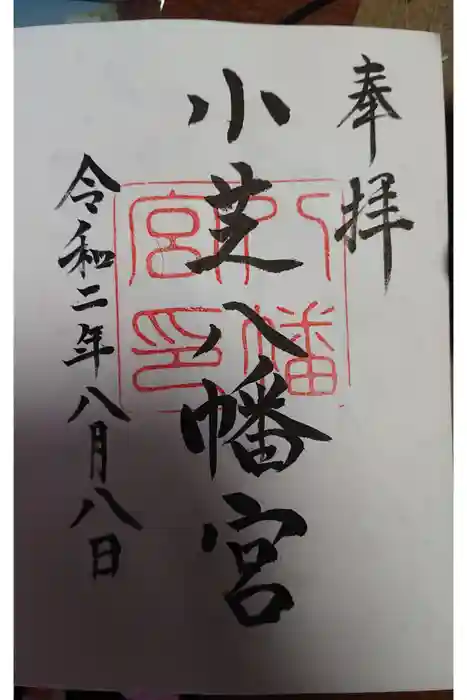 奉拝
小芝八幡宮
八幡
宮印
令和二年八月八日